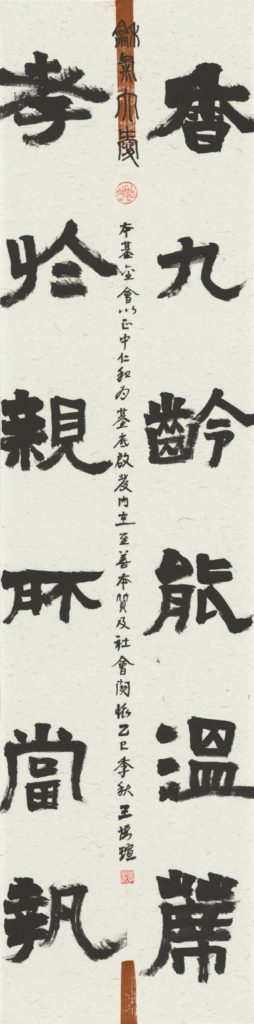 香九齡能溫蓆
龢氣大愛
本基金會以正中仁和為基底啟發內在至善本質及社會關懷乙巳季秋王瑄
孝於親所當執